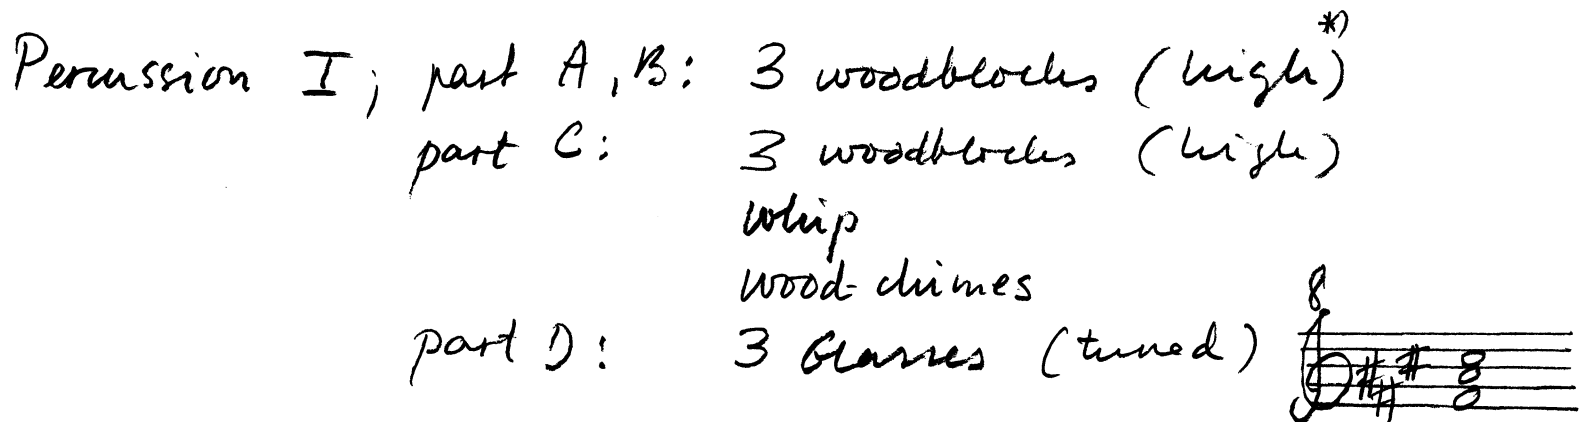 Percussion I; part A, B: 3 woodblocks (high) *)
part C: 3 woodblocks (high)
whip
wood-chimes
part D: 3 Glasses (tuned) 8